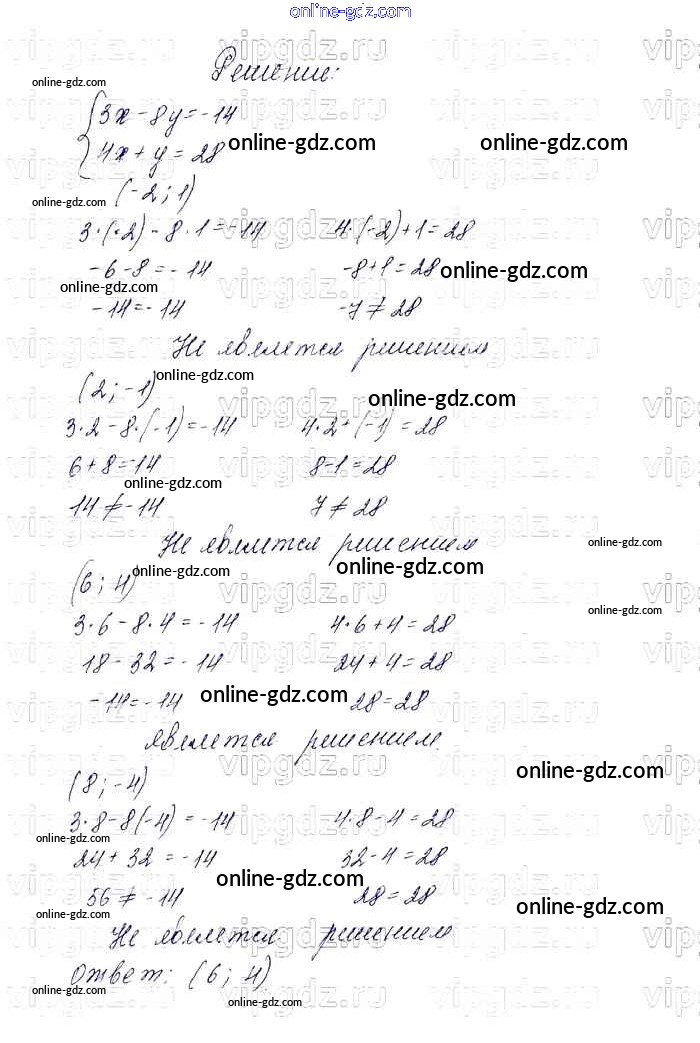 online-gdz.com
vipgdz.ru
Решение:
online-gdz.com
3x - 8y = -14
4x + y = 28
online-gdz.com online-gdz.com
(-2; 1)
online-gdz.com
3·(-2) - 8·1 = -14 4·(-2) + 1 = 28
-6 - 8 = -14 -8 + 1 = 28
online-gdz.com online-gdz.com
-14 = -14 -7 ≠ 28
Не является решением
online-gdz.com
(2; -1)
online-gdz.com
3·2 - 8·(-1) = -14 4·2 + (-1) = 28
6 + 8 = -14 8 - 1 = 28
online-gdz.com
14 ≠ -14 7 ≠ 28
Не является решением
online-gdz.com
online-gdz.com online-gdz.com
(6; 4)
online-gdz.com
3·6 - 8·4 = -14 4·6 + 4 = 28
18 - 32 = -14 24 + 4 = 28
-14 = -14 28 = 28
online-gdz.com
является решением.
online-gdz.com
(8; -4)
3·8 - 8(-4) = -14 4·8 - 4 = 28
online-gdz.com
24 + 32 = -14 32 - 4 = 28
online-gdz.com
56 ≠ -14 28 = 28
online-gdz.com online-gdz.com
Не является решением
Ответ: (6; 4)
online-gdz.com
online-gdz.com